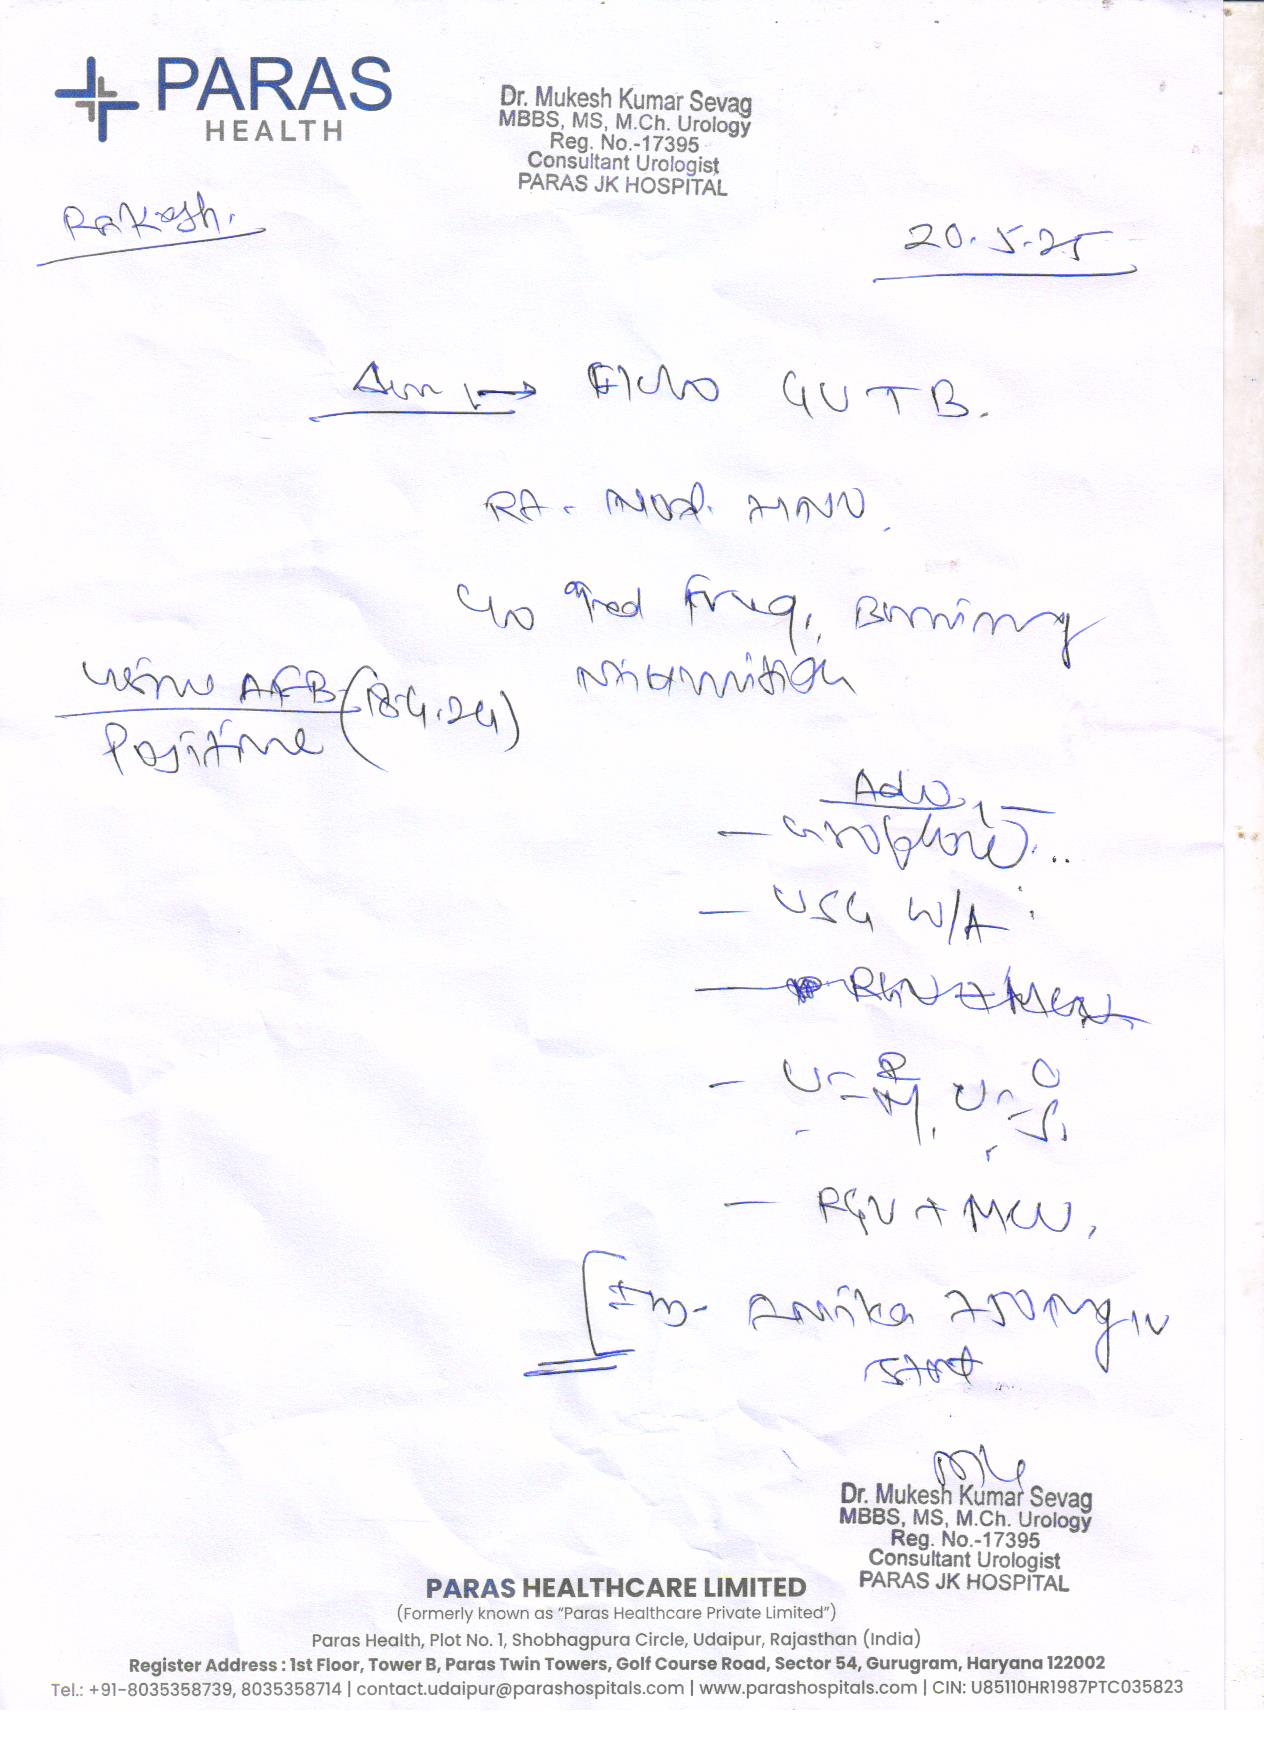 PARAS
HEALTH
Dr. Mukesh Kumar Sevag
MBBS, MS, M.Ch. Urology
Reg. No.-17395
Consultant Urologist
PARAS JK HOSPITAL
Rakesh.
20.5.25
F/C/O GUTB.
Mod. HNU
C/O Freq, Burning
Micturition
Urine AFB
Positive
Adv.
- Uroflow
- USG W/A
- U R/M, U C/S
- RGU + MCU,
Inj- Amika 750 mg IV
Stat
Dr. Mukesh Kumar Sevag
MBBS, MS, M.Ch. Urology
Reg. No.-17395
Consultant Urologist
PARAS JK HOSPITAL
PARAS HEALTHCARE LIMITED
(Formerly known as "Paras Healthcare Private Limited")
Paras Health, Plot No. 1, Shobhagpura Circle, Udaipur, Rajasthan (India)
Register Address : 1st Floor, Tower B, Paras Twin Towers, Golf Course Road, Sector 54, Gurugram, Haryana 122002
Tel.: +91-8035358739, 8035358714 | contact.udaipur@parashospitals.com | www.parashospitals.com | CIN: U85110HR1987PTC035823